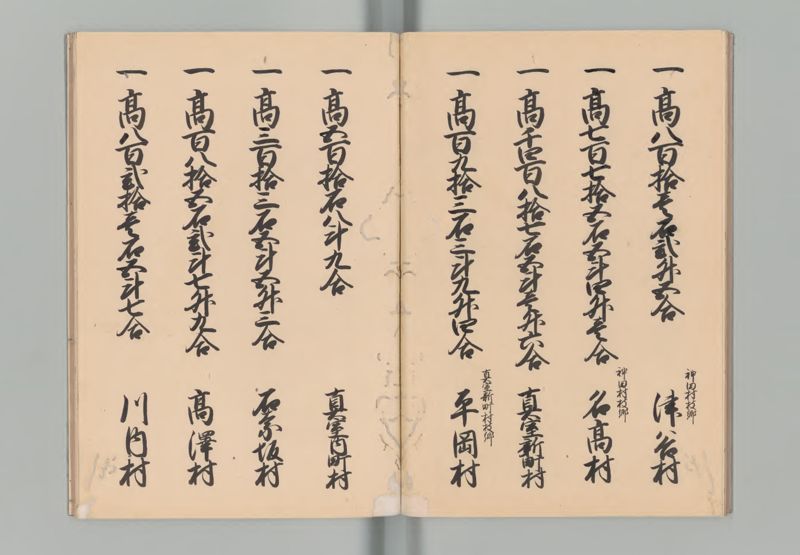 一高八百拾壱石弐升五合
神田村枝郷
津谷村
一高七百七拾五石五斗四升壱合
神田村枝郷
名高村
一高千四百八拾七石五斗壱升六合
真室新町村
一高百九拾三石三斗九升四合
真室新町村枝郷
平岡村
一高五百拾石八斗九合
真室内町村
一高三百拾三石五斗五升三合
石名坂村
一高百八拾五石弐斗七升九合
高澤村
一高八百弐拾壱石五斗七合
川内村